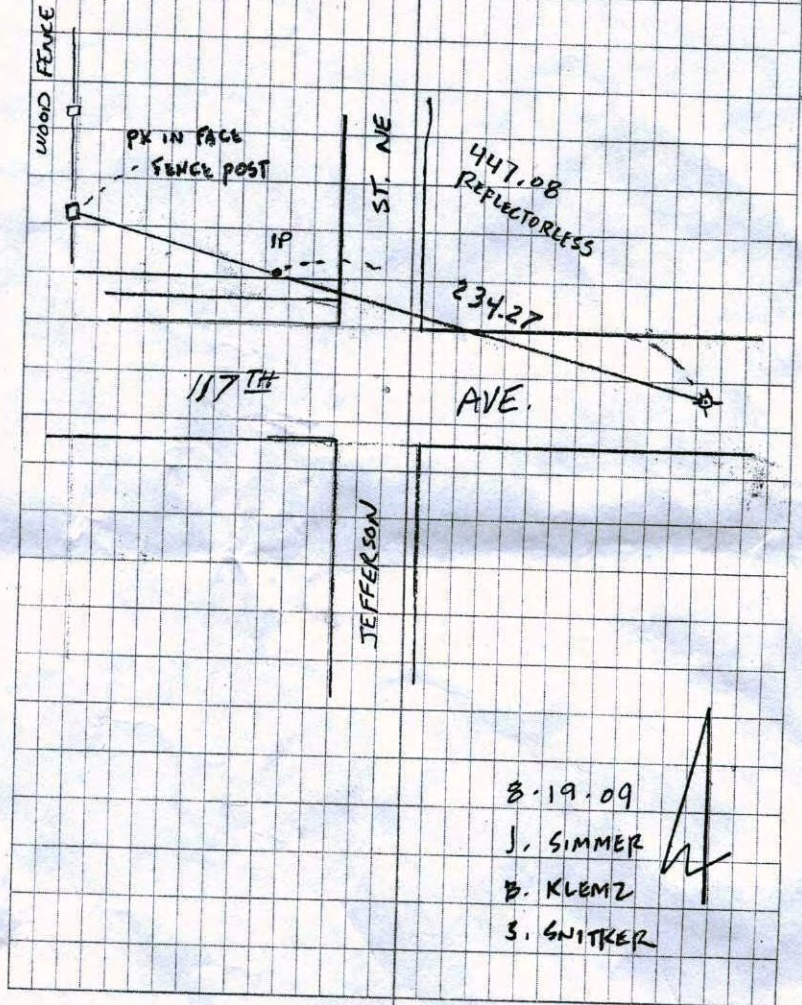 WOOD FENCE
PK IN FACE
FENCE POST
IP
ST. NE
447.08
REFLECTORLESS
234.27
117 TH
AVE.
JEFFERSON
8.19.09
J. SIMMER
B. KLEMZ
S. SNITKER
N